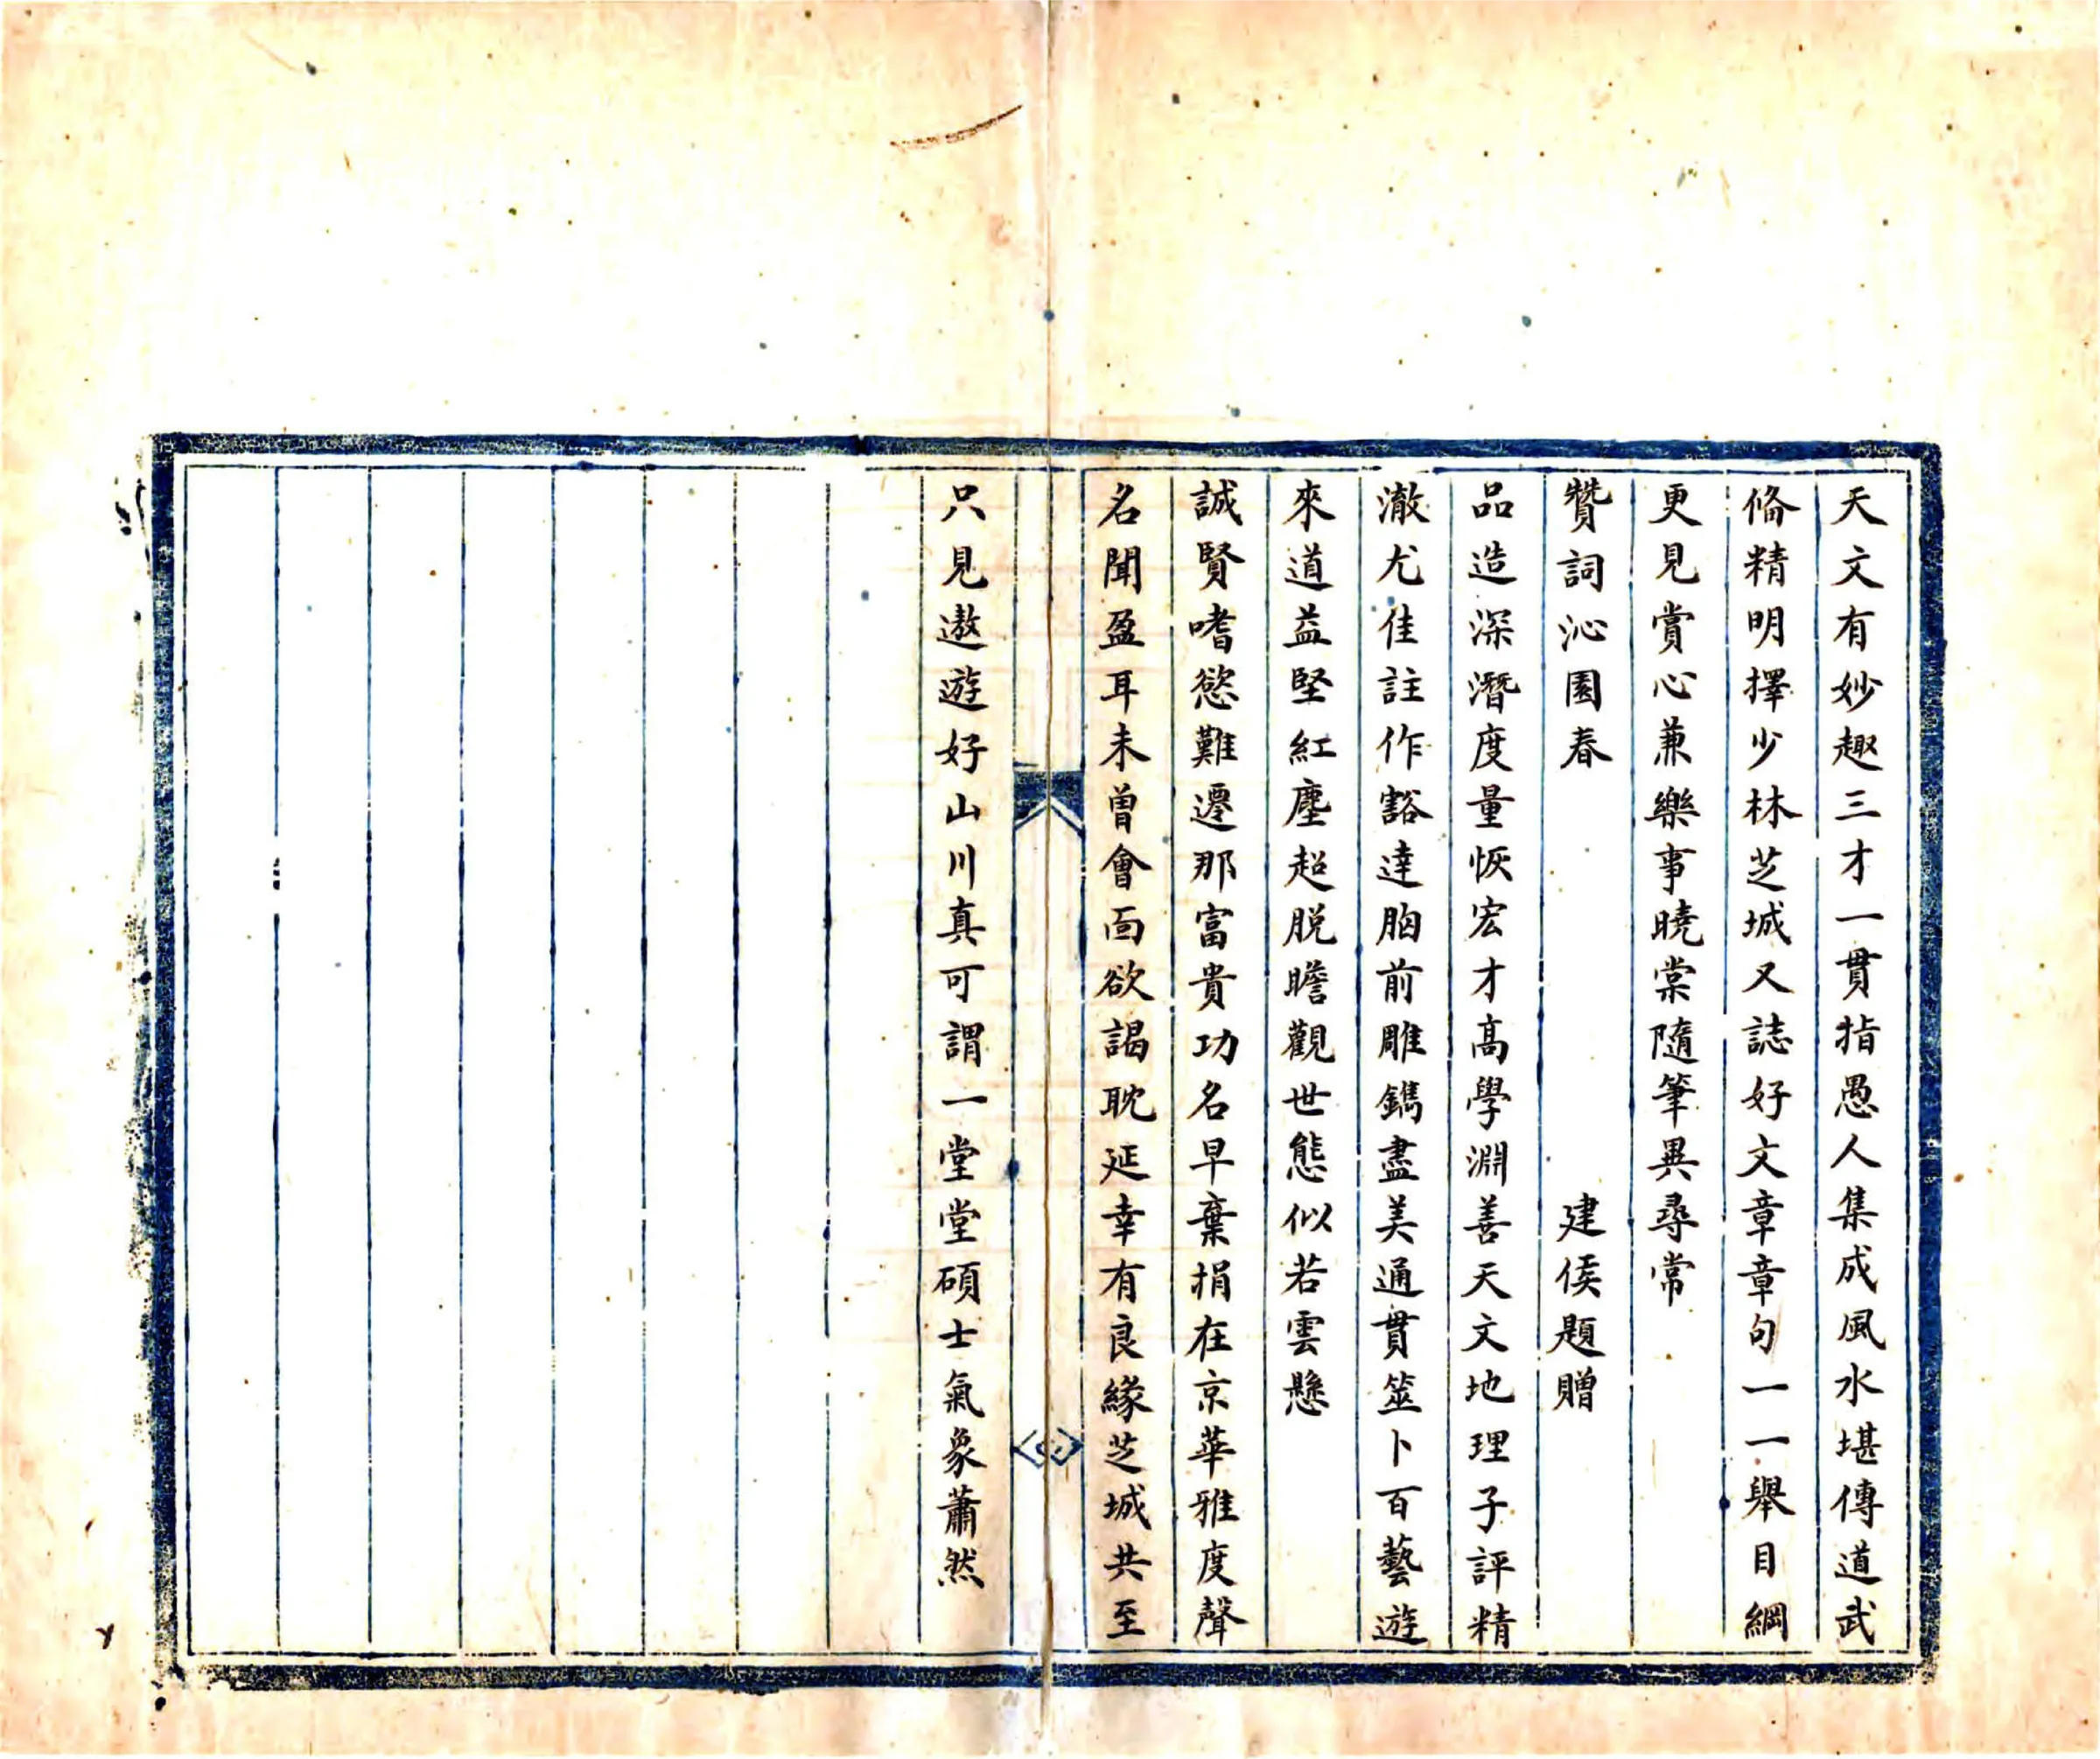 天文有妙趣三才一貫指愚人集成風水堪傳道武
備精明擇少林芝城又誌好文章章句一一舉目綱
更見賞心兼樂事曉棠隨筆異尋常
贊詞沁園春　建侯題贈
品造深潛度量恢宏才高學淵善天文地理子評精
澈尤佳註作豁達胸前雕鐫盡美通貫筮卜百藝遊
來道益堅紅塵超脫瞻觀世態似若雲懸
誠賢嗜慾難遷那富貴功名早棄捐在京華雅度聲
名聞盈耳未曾會面欲謁耽延幸有良緣芝城共至
只見遨遊好山川真可謂一堂堂碩士氣象蕭然